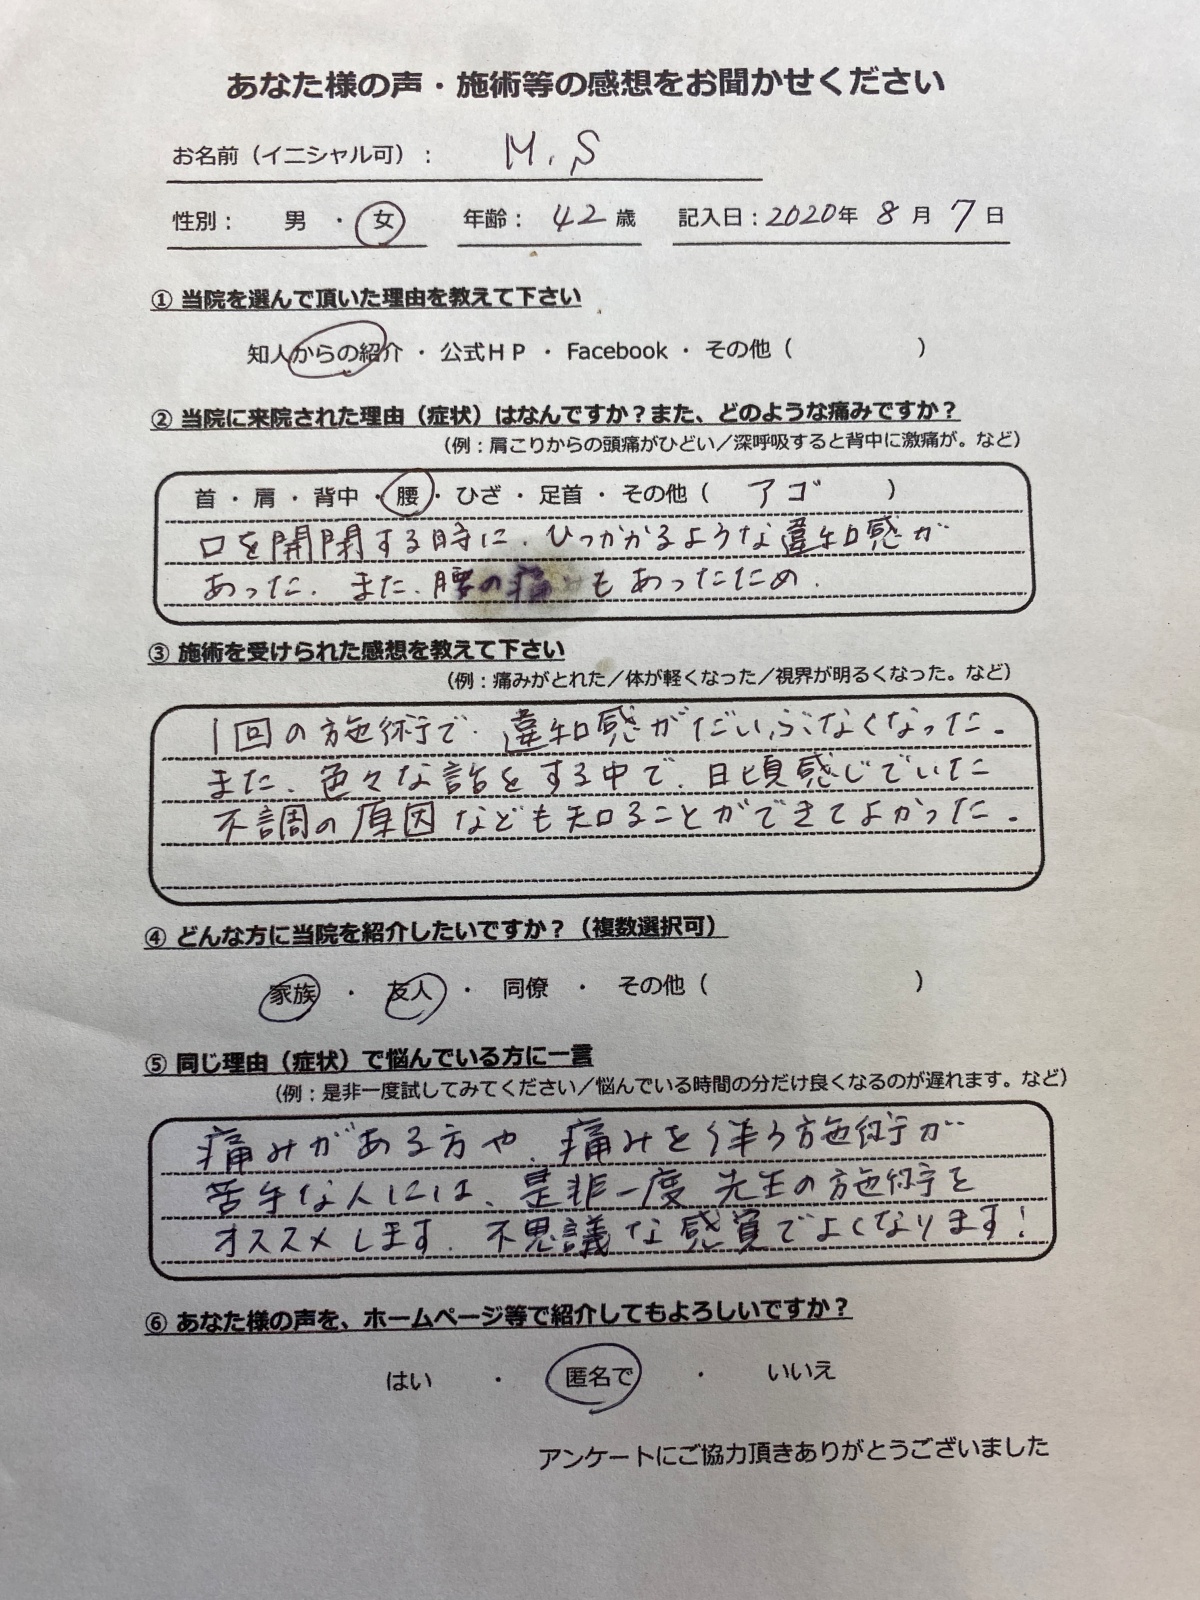 あなた様の声・施術等の感想をお聞かせください
お名前（イニシャル可）： M.S
性別： 男 ・ 女 年齢： 42 歳 記入日：2020年 8 月 7 日
① 当院を選んで頂いた理由を教えて下さい
知人からの紹介 ・ 公式ＨＰ ・ Facebook ・ その他（ ）
② 当院に来院された理由（症状）はなんですか？また、どのような痛みですか？
（例：肩こりからの頭痛がひどい／深呼吸すると背中に激痛が。など）
首 ・ 肩 ・ 背中 ・ 腰 ・ ひざ ・ 足首 ・ その他（ アゴ ）
口を開閉する時に、ひっかかるような違和感が
あった。また、腰の痛みもあったため。
③ 施術を受けられた感想を教えて下さい
（例：痛みがとれた／体が軽くなった／視界が明るくなった。など）
1回の施術で、違和感がだいぶなくなった。
また、色々な話をする中で、日頃感じでいた
不調の原因なども知ることができてよかった。
④ どんな方に当院を紹介したいですか？（複数選択可）
家族 ・ 友人 ・ 同僚 ・ その他（ ）
⑤ 同じ理由（症状）で悩んでいる方に一言
（例：是非一度試してみてください／悩んでいる時間の分だけ良くなるのが遅れます。など）
痛みがある方や、痛みを伴う施術が
苦手な人には、是非一度 先生の施術を
オススメします。不思議な感覚でよくなります！
⑥ あなた様の声を、ホームページ等で紹介してもよろしいですか？
はい ・ 匿名で ・ いいえ
アンケートにご協力頂きありがとうございました